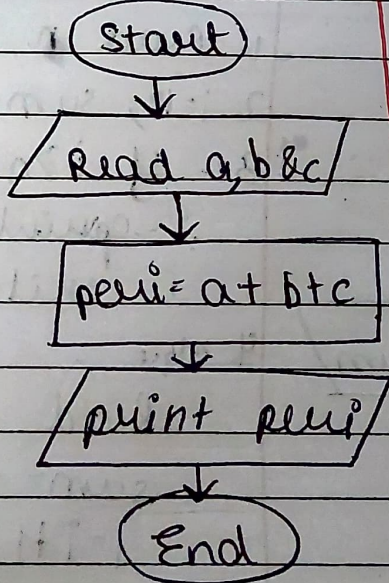 Start
Read a, b & c
peri = a + b + c
print peri
End